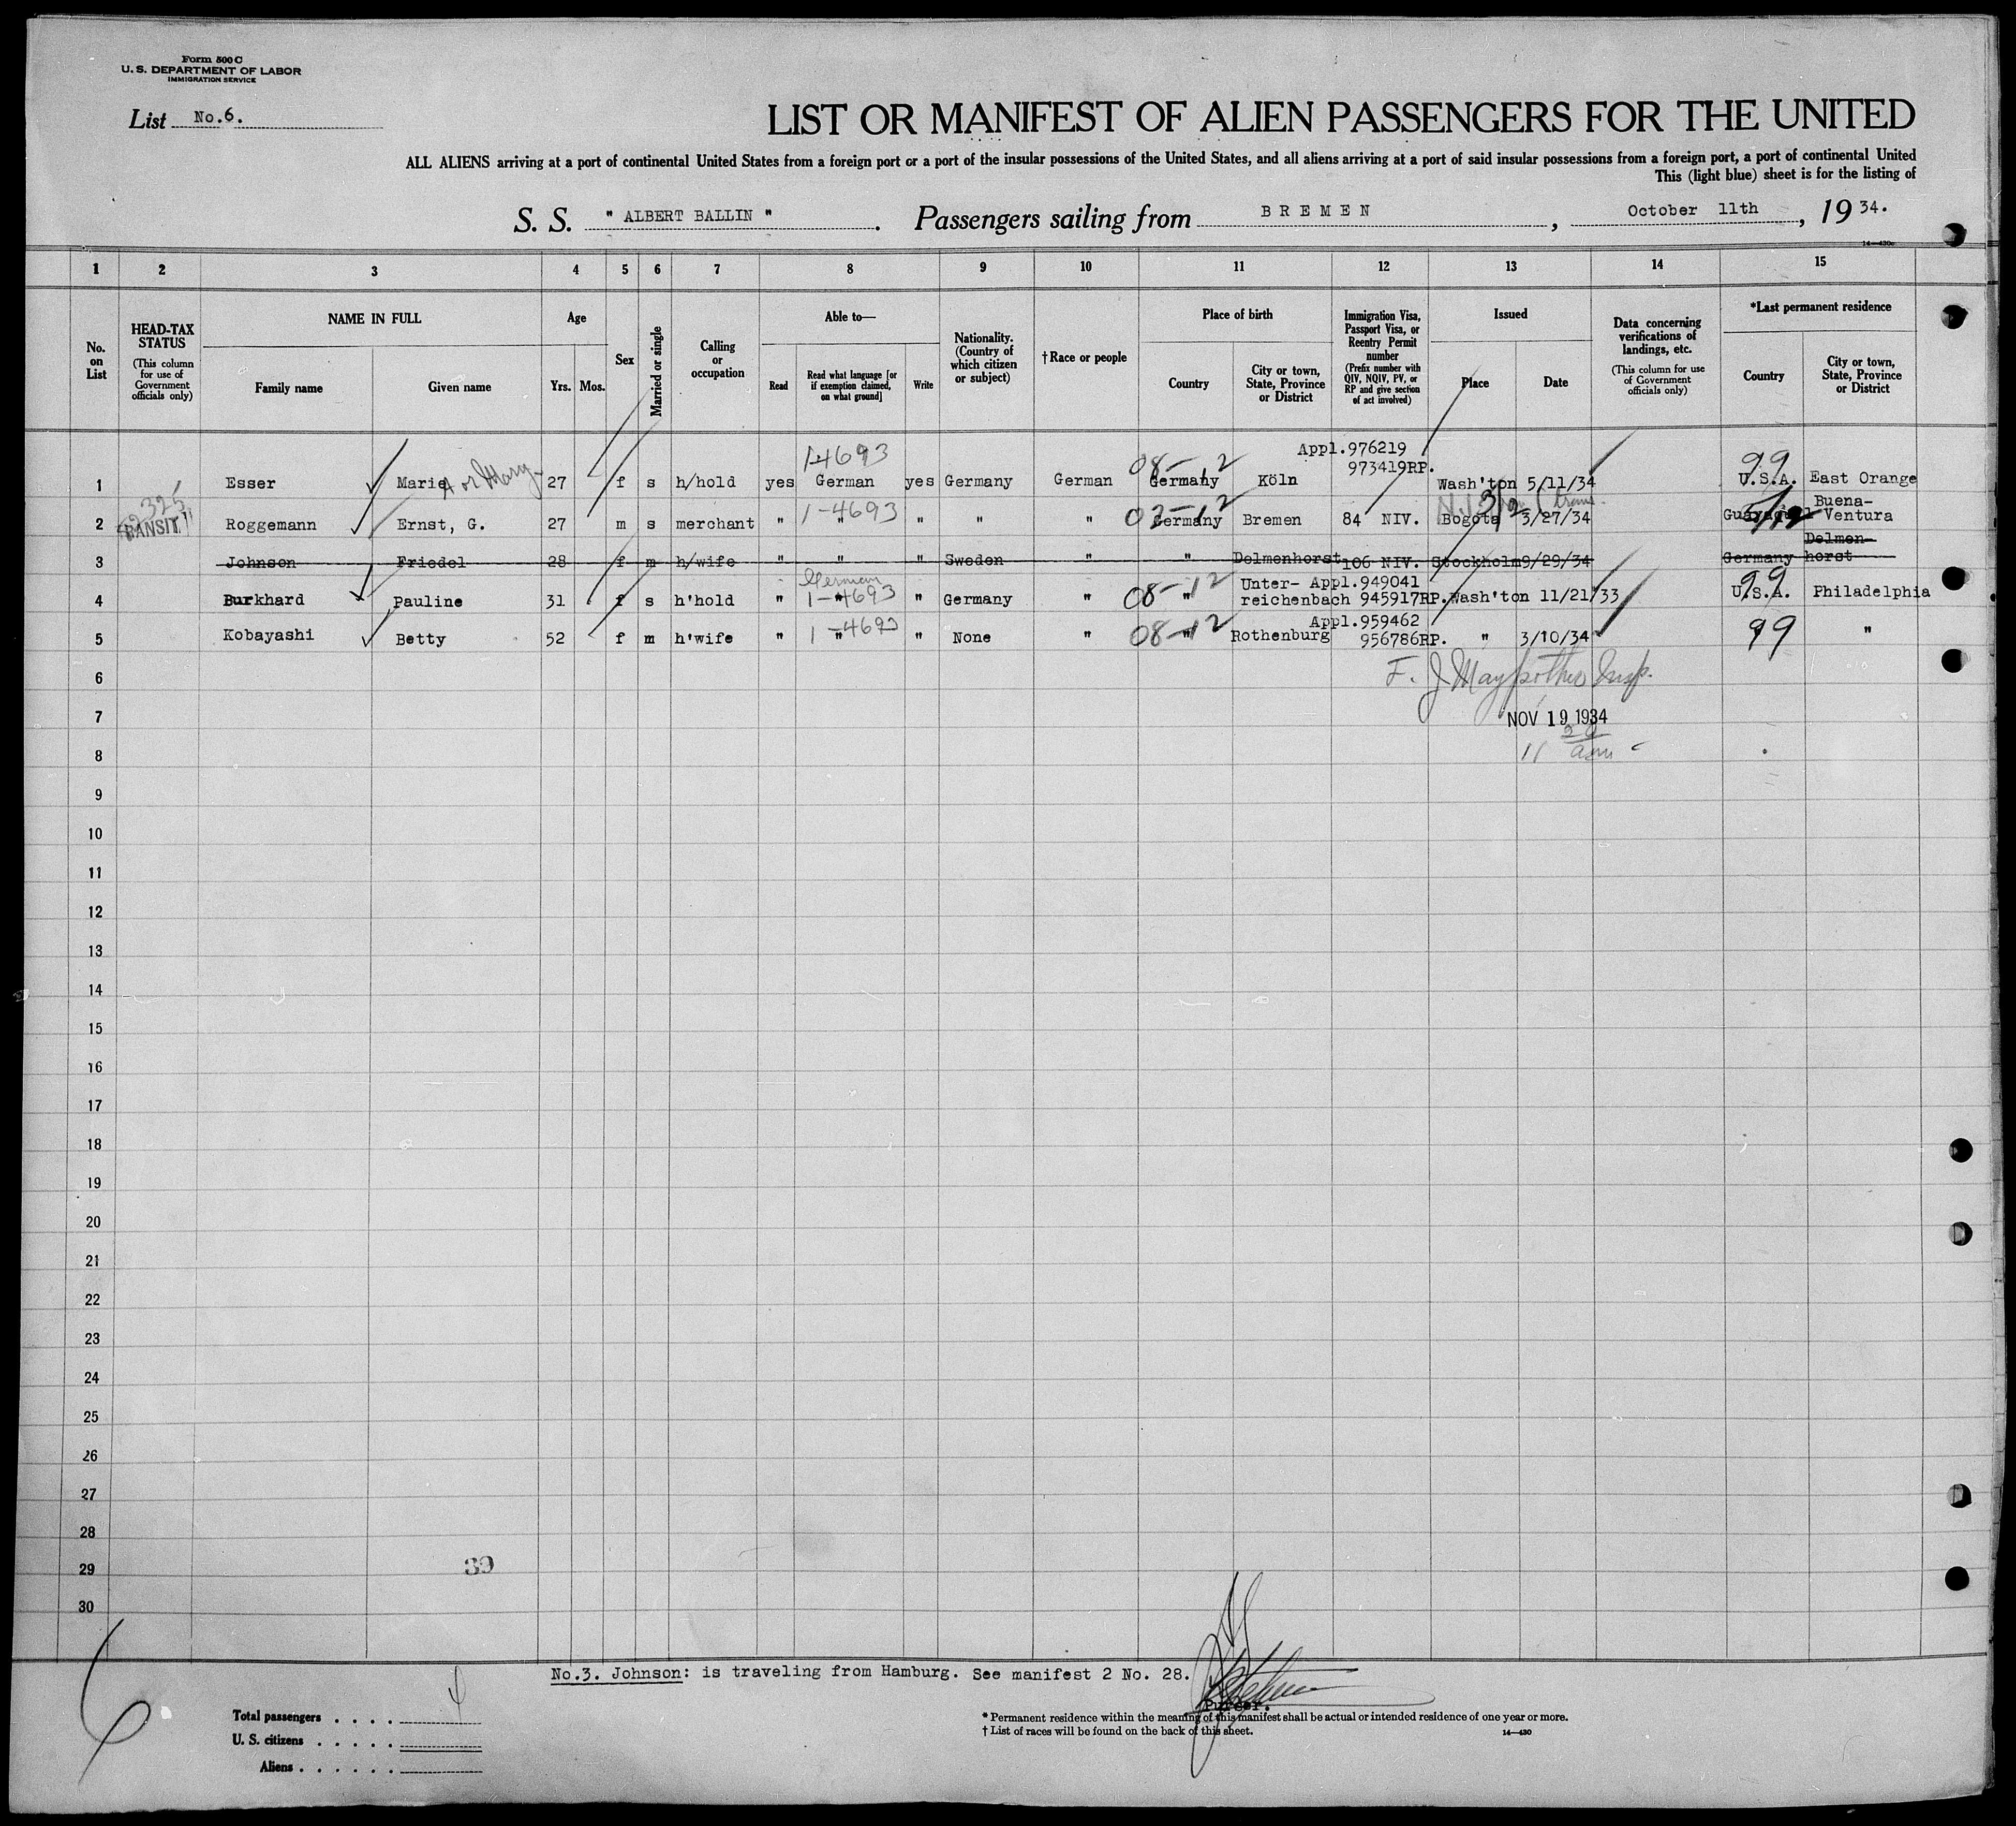 Form 500 C
U. S. DEPARTMENT OF LABOR
IMMIGRATION SERVICE
List No.6.
LIST OR MANIFEST OF ALIEN PASSENGERS FOR THE UNITED
ALL ALIENS arriving at a port of continental United States from a foreign port or a port of the insular possessions of the United States, and all aliens arriving at a port of said insular possessions from a foreign port, a port of continental United
This (light blue) sheet is for the listing of
S. S. " ALBERT BALLIN ". Passengers sailing from BREMEN, October 11th, 19 34.
14—430c
1 2 3 4 5 6 7 8 9 10 11 12 13 14 15
No. on List
HEAD-TAX STATUS
(This column for use of Government officials only)
NAME IN FULL
Family name Given name
Age
Yrs. Mos.
Sex
Married or single
Calling or occupation
Able to—
Read
Read what language [or if exemption claimed, on what ground]
Write
Nationality. (Country of which citizen or subject)
†Race or people
Place of birth
Country
City or town, State, Province or District
Immigration Visa, Passport Visa, or Reentry Permit number
(Prefix number with QIV, NQIV, PV, or RP and give section of act involved)
Issued
Place Date
Data concerning verifications of landings, etc.
(This column for use of Government officials only)
*Last permanent residence
Country
City or town, State, Province or District
1-4693 08-12 Appl.976219 99
1 Esser Marie A or Mary 27 f s h/hold yes German yes Germany German Germany Köln 973419RP. Wash'ton 5/11/34 U.S.A. East Orange
1-4693 Buena-
2 TRANSIT Roggemann Ernst, G. 27 m s merchant " " " " " Germany Bremen 84 NIV. Bogota 3/27/34 Guayaquil Ventura
Delmen-
3 Johnson Friedel 28 f m h/wife " " " Sweden " " Delmenhorst 106 NIV. Stockholm 9/29/34 Germany horst
German 08-12 Unter- Appl.949041 99
4 Burkhard Pauline 31 f s h'hold " 1-4693 " " Germany " " reichenbach 945917RP. Wash'ton 11/21/33 U.S.A. Philadelphia
1-4693 08-12 Appl.959462 99
5 Kobayashi Betty 52 f m h'wife " " " None " " Rothenburg 956786RP. " 3/10/34 "
6
7 NOV 19 1934
11 30 am
8
9
10
11
12
13
14
15
16
17
18
19
20
21
22
23
24
25
26
27
28
29 39
30
6
No.3. Johnson: is traveling from Hamburg. See manifest 2 No. 28.
Purser.
Total passengers . . . .
U. S. citizens . . . . .
Aliens . . . . . .
* Permanent residence within the meaning of this manifest shall be actual or intended residence of one year or more.
† List of races will be found on the back of this sheet.
14—430